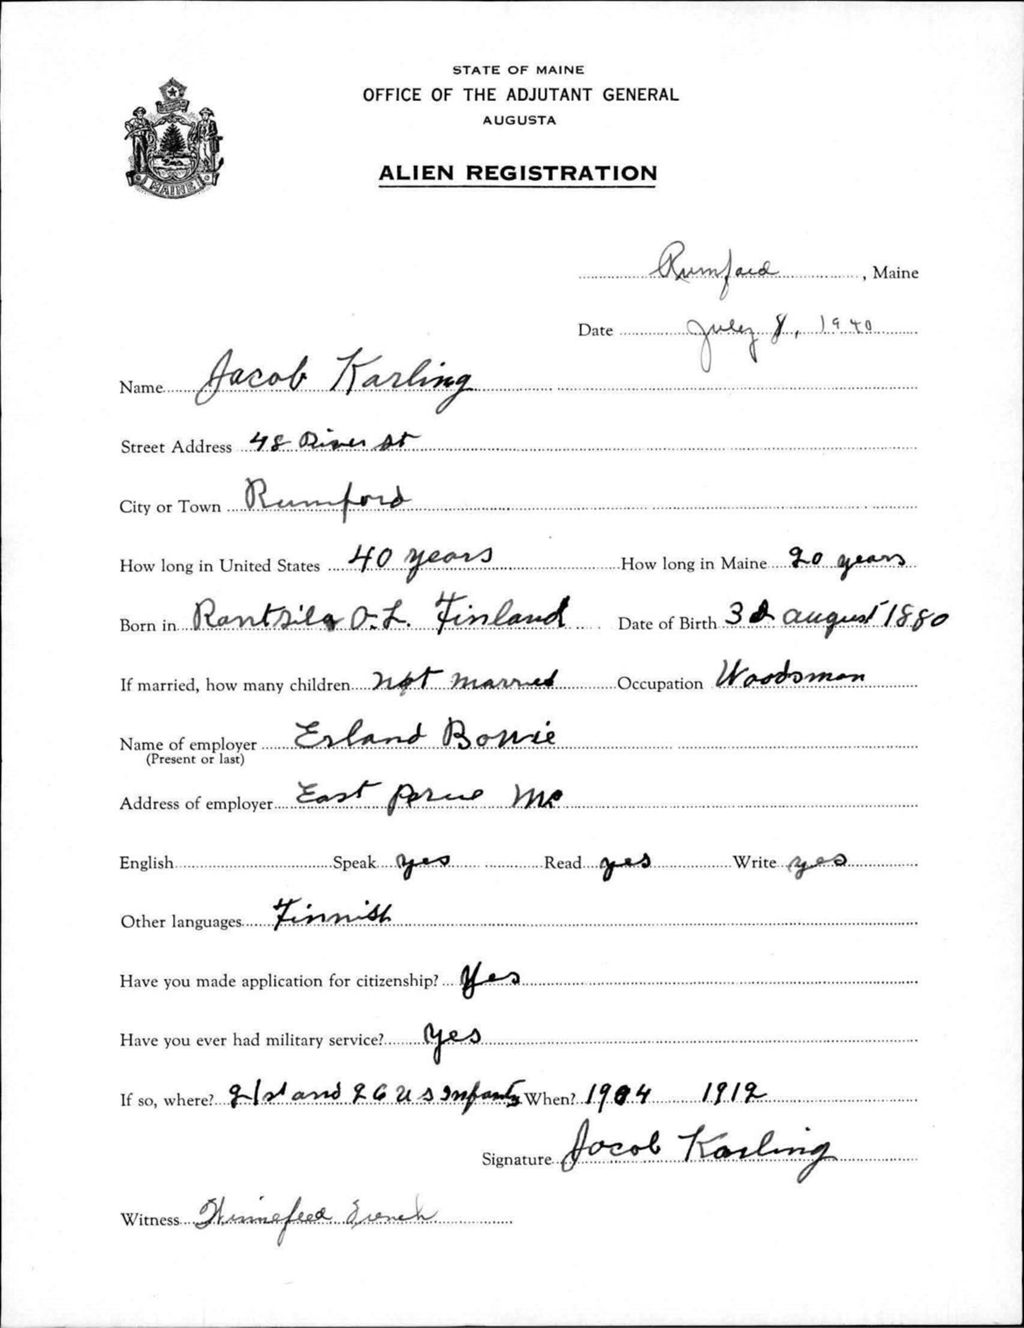 STATE OF MAINE
OFFICE OF THE ADJUTANT GENERAL
AUGUSTA
ALIEN REGISTRATION
MAINE
Rumford, Maine
Date July 8, 1940
Name Jacob Karling
Street Address 48 River St
City or Town Rumford
How long in United States 40 years How long in Maine 20 years
Born in Rantsila O.L. Finland Date of Birth 3 august 1880
If married, how many children not married Occupation Woodsman
Name of employer Erland Bowie
(Present or last)
Address of employer East Perue Me
English Speak yes Read yes Write yes
Other languages Finnish
Have you made application for citizenship? Yes
Have you ever had military service? yes
If so, where? 21st and 26 U S Infanty When? 1904 1912
Signature Jocob Karling
Witness Winnefred French